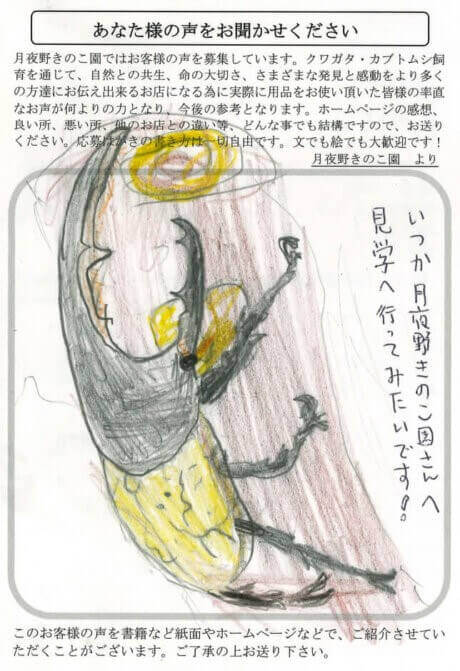 あなた様の声をお聞かせください
月夜野きのこ園ではお客様の声を募集しています。クワガタ・カブトムシ飼
育を通じて、自然との共生、命の大切さ、さまざまな発見と感動をより多く
の方達にお伝え出来るお店になる為に実際に用品をお使い頂いた皆様の率直
なお声が何よりの力となり、今後の参考となります。ホームページの感想、
良い所、悪い所、他のお店との違い等、どんな事でも結構ですので、お送り
ください。応募はがきの書き方は一切自由です。文でも絵でも大歓迎です！
月夜野きのこ園　より
いつか月夜野きのこ園さんへ
見学へ行ってみたいです！
このお客様の声を書籍など紙面やホームページなどで、ご紹介させてい
ただくことがございます。ご了承の上お送り下さい。